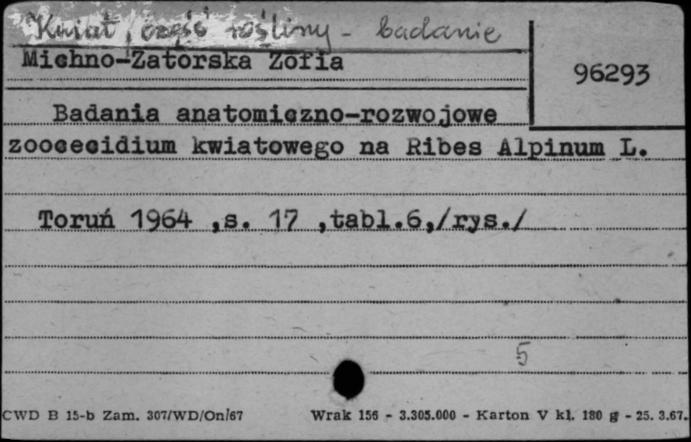 Kwiat, część rośliny - badanie
Michno-Zatorska Zofia
96293
Badania anatomiczno-rozwojowe
zoocecidium kwiatowego na Ribes Alpinum L.
Toruń 1964 ,s. 17 ,tabl.6,/rys./
5
CWD B 15-b Zam. 307/WD/On/67 Wrak 156 - 3.305.000 - Karton V kl. 180 g - 25. 3.67.